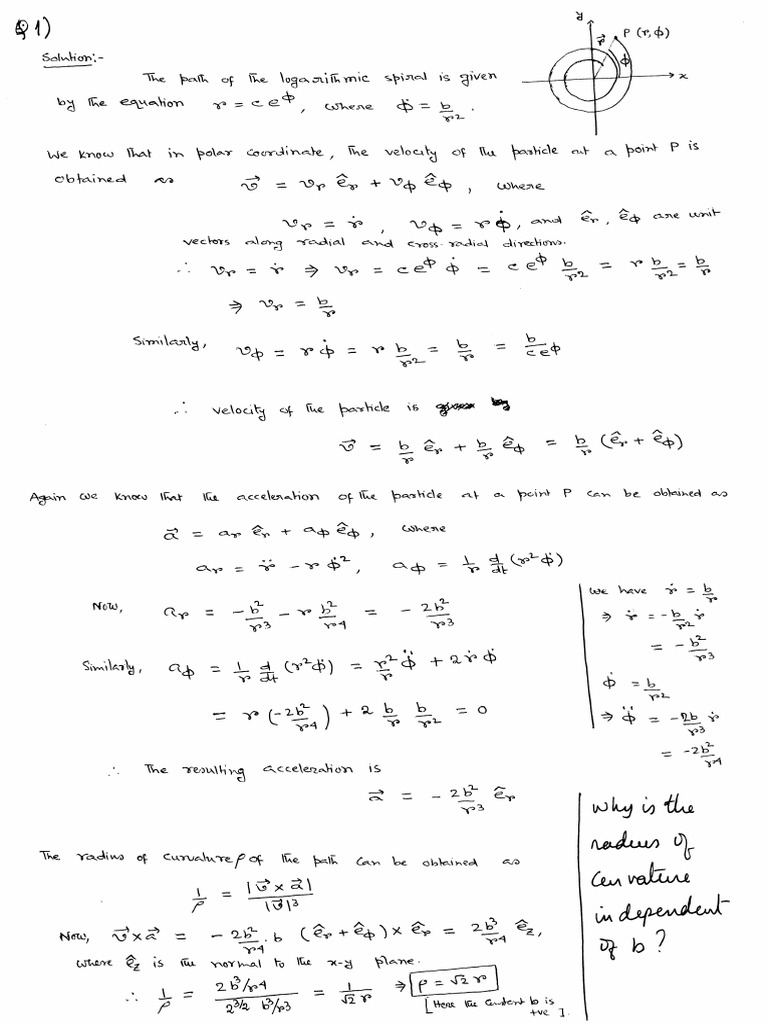 Q1)
Solution:-
y
P (r, ϕ)
r⃗
ϕ
x
The path of the logarithmic spiral is given
by the equation r = c e^ϕ, where ϕ̇ = b/r².
We know that in polar coordinate, the velocity of the particle at a point P is
obtained as v⃗ = v_r ê_r + v_ϕ ê_ϕ, where
v_r = ṙ, v_ϕ = r ϕ̇, and ê_r, ê_ϕ are unit
vectors along radial and cross-radial directions.
∴ v_r = ṙ ⇒ v_r = c e^ϕ ϕ̇ = c e^ϕ b/r² = r b/r² = b/r
⇒ v_r = b/r
Similarly, v_ϕ = r ϕ̇ = r b/r² = b/r = b/(c e^ϕ)
∴ velocity of the particle is
v⃗ = b/r ê_r + b/r ê_ϕ = b/r (ê_r + ê_ϕ)
Again we know that the acceleration of the particle at a point P can be obtained as
a⃗ = a_r ê_r + a_ϕ ê_ϕ, where
a_r = r̈ - r ϕ̇², a_ϕ = 1/r d/dt (r² ϕ̇)
Now, a_r = -b²/r³ - r b²/r⁴ = - 2b²/r³
Similarly, a_ϕ = 1/r d/dt (r² ϕ̇) = r²/r ϕ̈ + 2 ṙ ϕ̇
= r (-2b²/r⁴) + 2 b/r b/r² = 0
we have ṙ = b/r
⇒ r̈ = -b/r² ṙ
= - b²/r³
ϕ̇ = b/r²
⇒ ϕ̈ = -2b/r³ ṙ
= -2b²/r⁴
∴ The resulting acceleration is
a⃗ = - 2b²/r³ ê_r
The radius of curvature ρ of the path can be obtained as
1/ρ = |v⃗ × a⃗| / |v⃗|³
Now, v⃗ × a⃗ = - 2b²/r⁴ . b (ê_r + ê_ϕ) × ê_r = 2b³/r⁴ ê_z,
where ê_z is the normal to the x-y plane.
∴ 1/ρ = (2b³/r⁴) / (2^(3/2) b³/r³) = 1/(√2 r) ⇒ ρ = √2 r
[Here the constant b is
+ve].
Why is the
radius of
curvature
independent
of b?